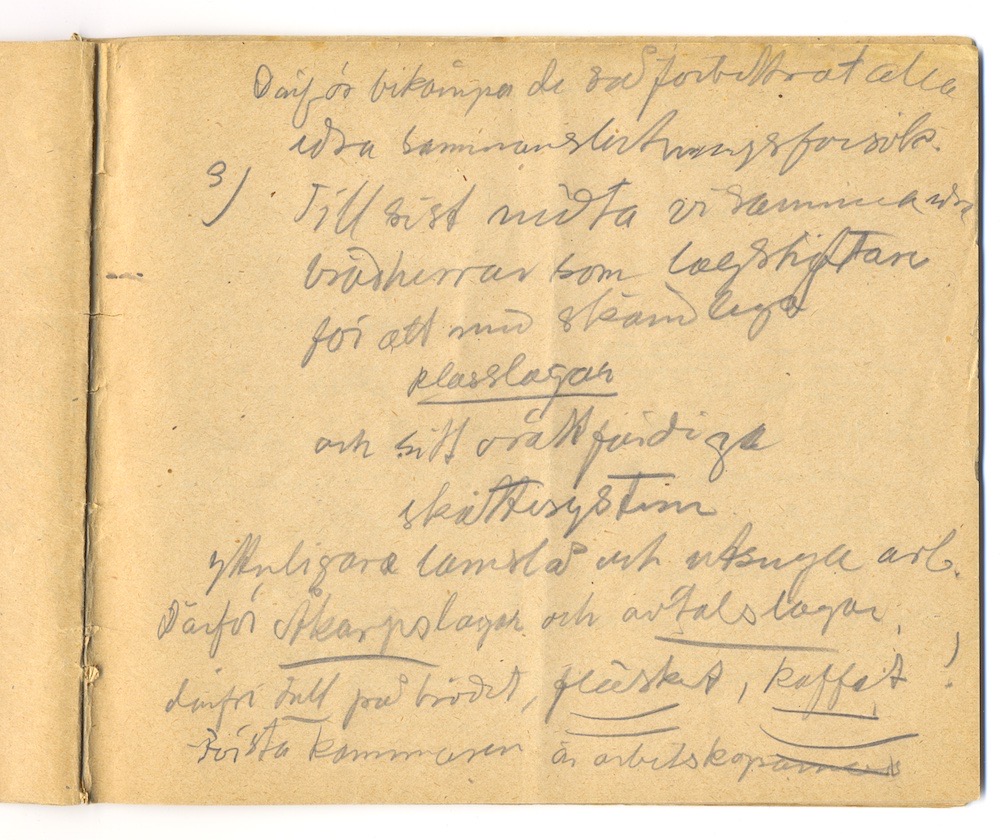 Därför bekämpa de så förbittrat alla
våra sammanslutningsförsök.
3) Till sist möta vi samma
brödherrar som lagstiftare
för att med skändliga
klasslagar
och sitt orättfärdiga
skattesystem
ytterligare lamslå och utsuga arb.
Därför Åkarpslagar och avtalslagar,
därför tull på brödet, fläsket, kaffet!
Första kammaren är arbetsköparnes